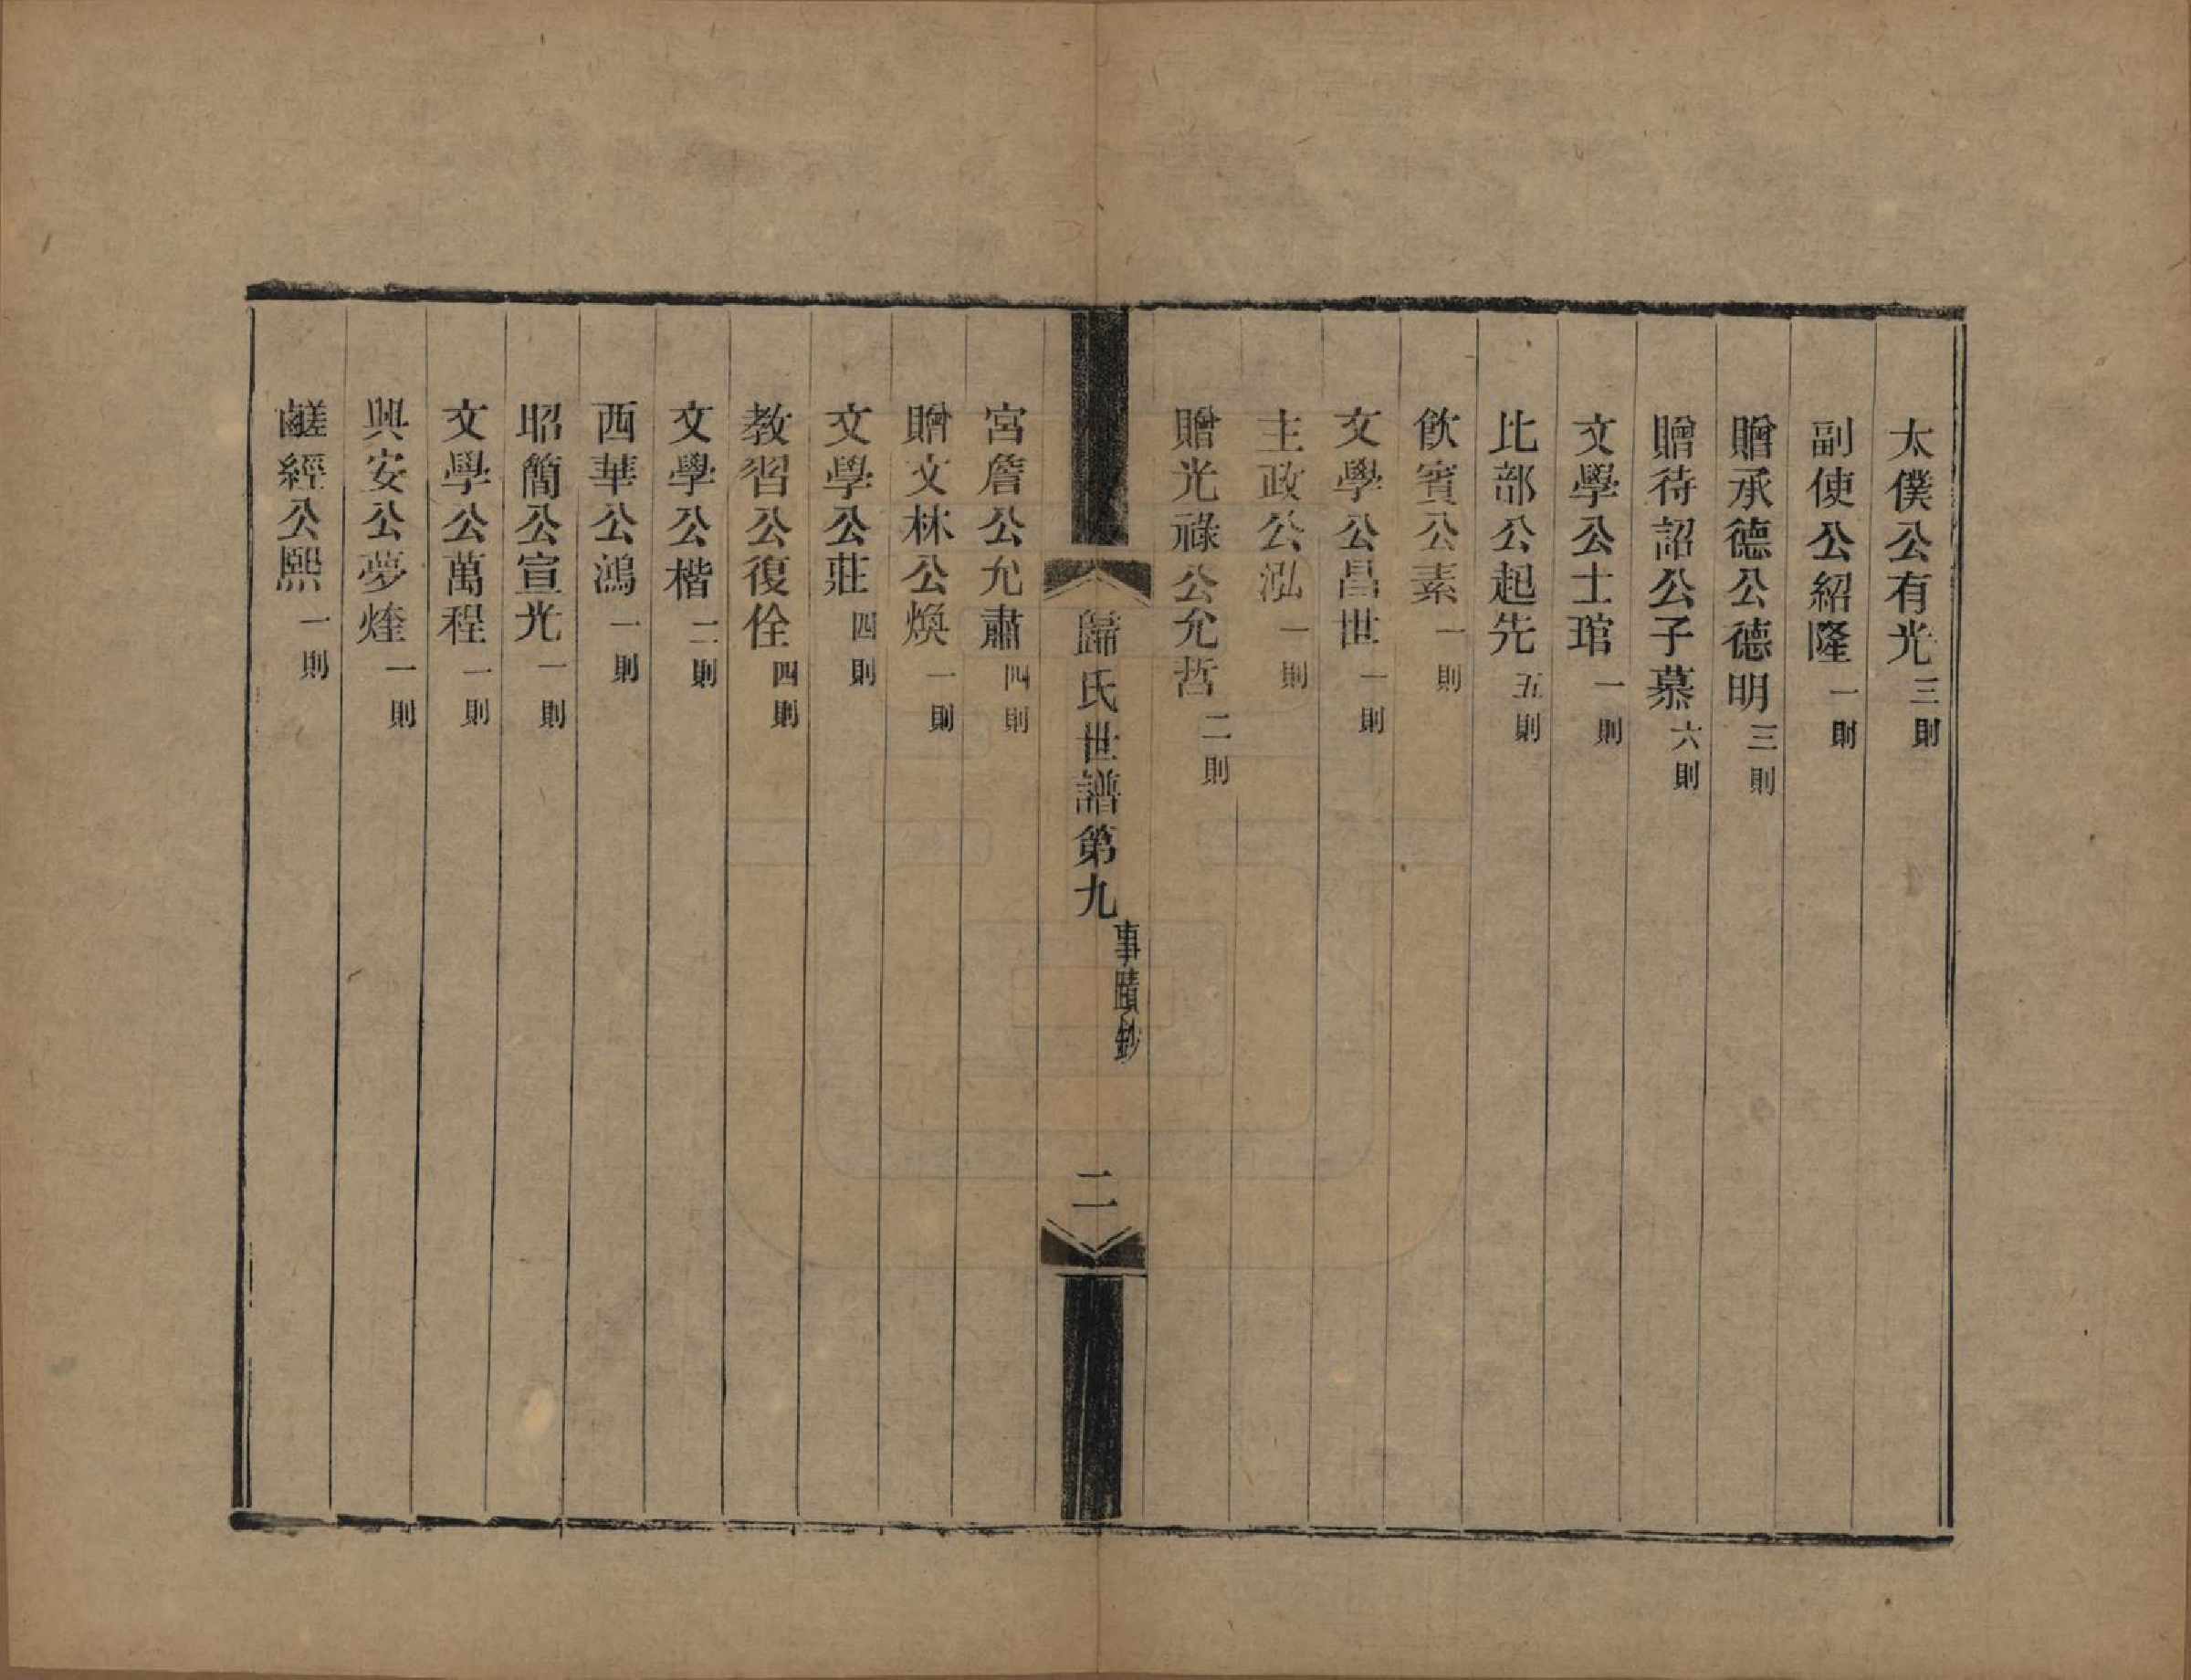 太僕公有光三則
副使公紹隆一則
贈承德公德明三則
贈待詔公子慕六則
文學公士琯一則
比部公起先五則
飲賓公素一則
文學公昌世一則
主政公泓一則
贈光祿公允哲二則
歸氏世譜第九 事蹟鈔 二
宮詹公允肅四則
贈文林公煥一則
文學公莊四則
教習公復佺四則
文學公楷二則
西華公鴻一則
昭簡公宣光一則
文學公萬程一則
興安公夢煃一則
鹺經公熙一則